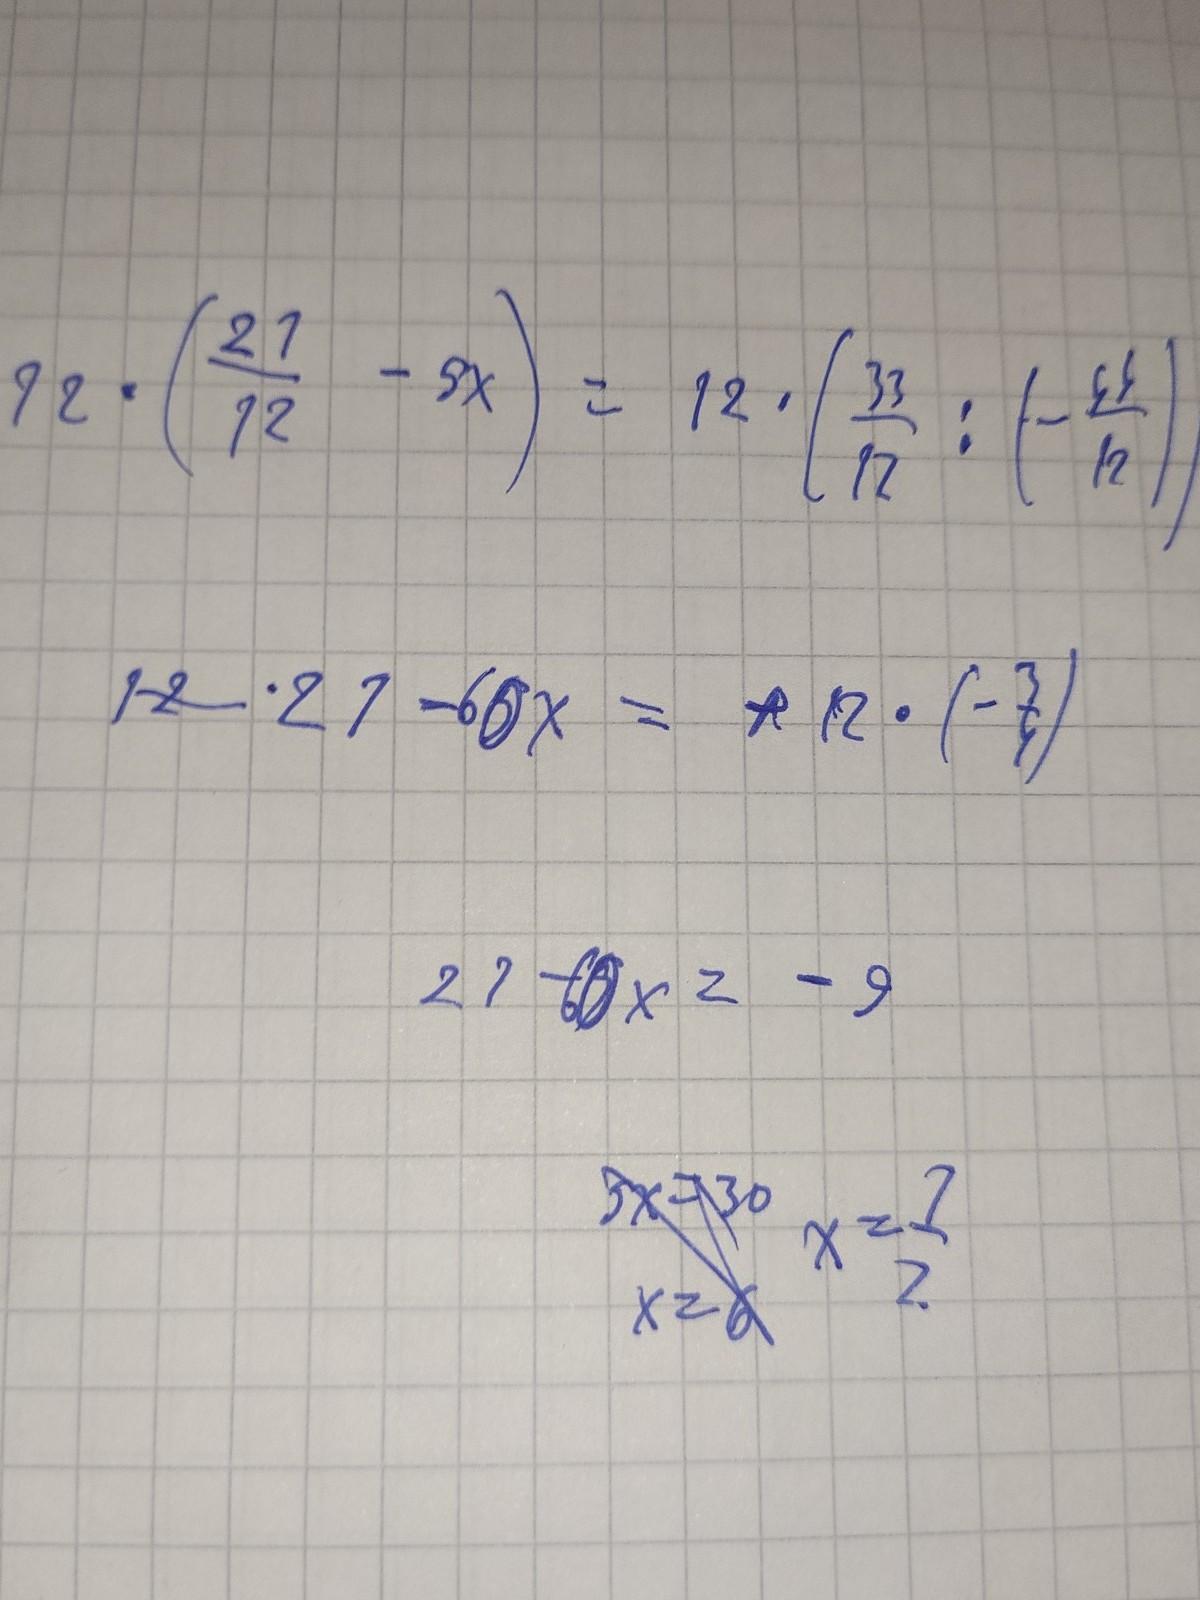 12 · (21/12 - 5x) = 12 · (33/12 : (-44/12))
12 · 21 - 60x = 12 · (-3/4)
21 - 60x = - 9
5x = 30 x = 1/2
x = 6